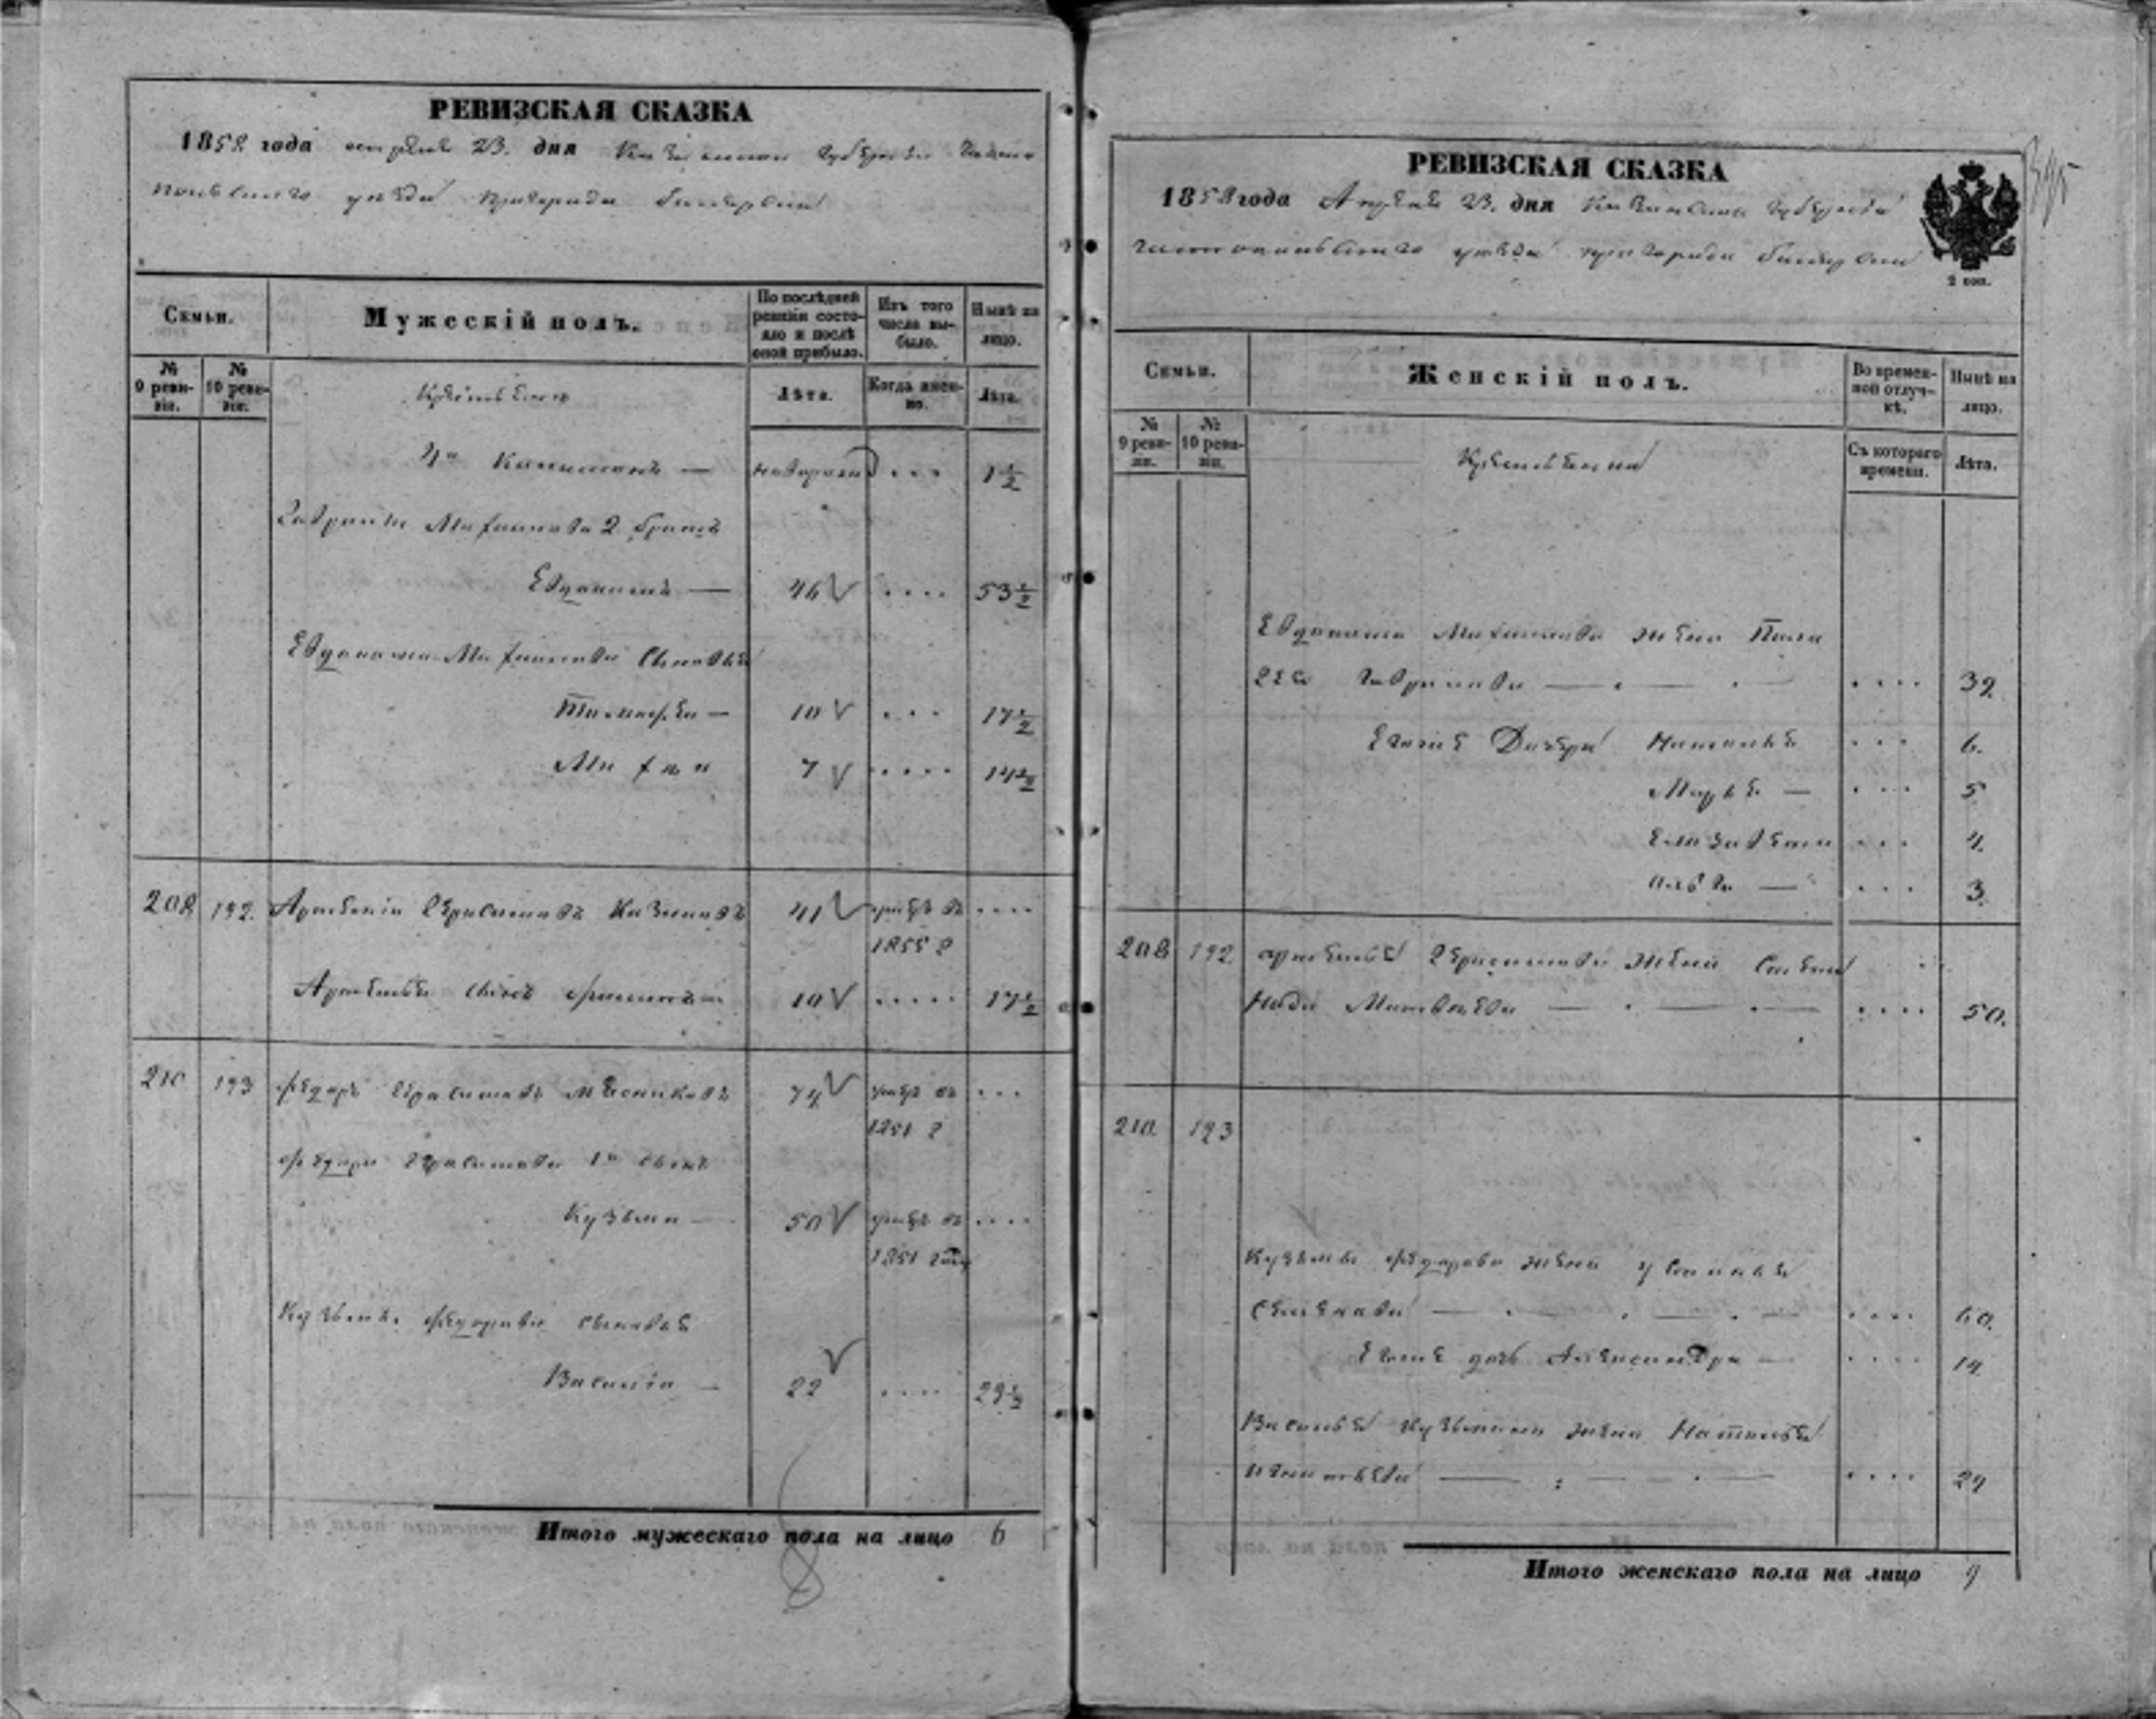 РЕВИЗСКАЯ СКАЗКА
1858 года апреля 23. дня Казанской губернии Чисто
польскаго уезда пригорода Билярска
Семьи.
Мужескій полъ.
По послѣдней ревизіи состояло и послѣ оной прибыло.
Изъ того числа выбыло.
Нынѣ на лицо.
№ 9 ревизіи.
№ 10 ревизіи.
Лѣта.
Когда именно.
Лѣта.
4й Капитонъ — новорожд .... 1½
Гаврилы Михайлова 2 братъ
Евдокимъ — 46 .... 53½
Евдокима Михайлова сыновья
Тимофей — 10 .... 17½
Михаи 7 .... 14½
208 192. Артемій Герасимовъ 41 умеръ въ ....
1855 г
Артемья сынъ Филипъ — 10 .... 17½
210 193 Федоръ Герасимовъ Мясниковъ 74 умеръ въ ...
1851 г
Федора Герасимова 1й сынъ
Кузьма — 50 умеръ въ ....
1851 году
Кузьмы Федорова сыновья
Василій — 22 .... 29½
Итого мужескаго пола на лицо 6
395
РЕВИЗСКАЯ СКАЗКА
1858 года Апреля 23. дня Казанской губернии
Чистопольскаго уезда пригорода Билярска
2 коп.
Семьи.
Женскій полъ.
Во временной отлучкѣ.
Нынѣ на лицо.
№ 9 ревизіи.
№ 10 ревизіи.
Съ котораго времени.
Лѣта.
Евдокима Михайлова жена Пела
гея Гаврилова — .... 39
Егоже Дочери Наталья ... 6.
Марья — ... 5
Елизавета ... 4.
... 3.
208 192. Артемья Герасимова жена Степа
нида Матвеева — .... 50.
210. 193
Кузьмы Федорова жена Устинья
Семенова — .... 60.
Егоже дочь Александра — .... 14
Василья Кузьмина жена Наталья
Игнатьева — .... 29
Итого женскаго пола на лицо 9